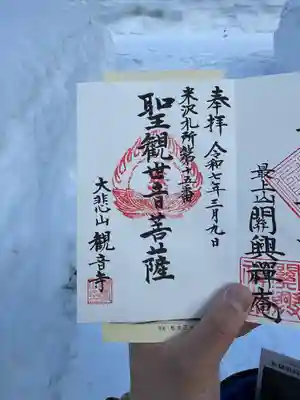 奉拝 令和七年三月九日
米沢札所第十五番
聖觀世音菩薩
大悲山 觀音寺
最上山 関興禪庵